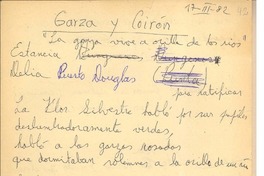 17-III-82
Garza y Coirón
"La garza vive a orilla de los ríos"
Estancia
Delia Puerto Douglas
para ratificar
La Flor Silvestre habló por sus pupilas
deslumbradoramente verdes,
habló a las garzas rosadas
que dormitaban solemnes a la orilla de un